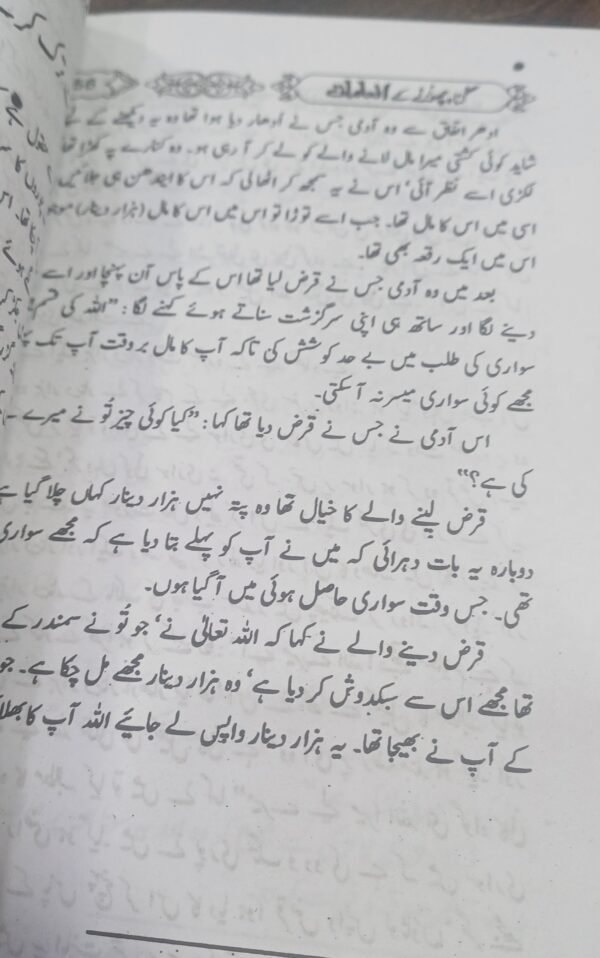 کے انعامات
ادھر اتفاق سے وہ آدمی جس نے ادھار دیا ہوا تھا وہ یہ دیکھنے کے لیے
شاید کوئی کشتی میرا مال لانے والے کو لے کر آ رہی ہو۔ وہ کنارے پہ کھڑا تھا
لکڑی اسے نظر آئی‘ اس نے یہ سمجھ کر اٹھالی کہ اس کا ایندھن ہی جلائیں
اسی میں اس کا مال تھا۔ جب اسے توڑا تو اس میں اس کا مال (ہزار دینار)
اس میں ایک رقعہ بھی تھا۔
بعد میں وہ آدمی جس نے قرض لیا تھا اس کے پاس آن پہنچا اور اسے
دینے لگا اور ساتھ ہی اپنی سرگزشت سناتے ہوئے کہنے لگا: ”اللہ کی قسم!
سواری کی طلب میں بے حد کوشش کی تاکہ آپ کا مال بروقت آپ تک
مجھے کوئی سواری میسر نہ آسکتی۔
اس آدمی نے جس نے قرض دیا تھا کہا: ”کیا کوئی چیز تُو نے میرے
کی ہے؟“
قرض لینے والے کا خیال تھا وہ پتہ نہیں ہزار دینار کہاں چلا گیا ہے
دوبارہ یہ بات دہرائی کہ میں نے آپ کو پہلے بتا دیا ہے کہ مجھے سواری
تھی۔ جس وقت سواری حاصل ہوئی میں آگیا ہوں۔
قرض دینے والے نے کہا کہ اللہ تعالٰی نے‘ جو تُو نے سمندر کے
تھا مجھے اس سے سبکدوش کر دیا ہے‘ وہ ہزار دینار مجھے مل چکا ہے۔ جو
کے آپ نے بھیجا تھا۔ یہ ہزار دینار واپس لے جایئے اللہ آپ کا بھلا